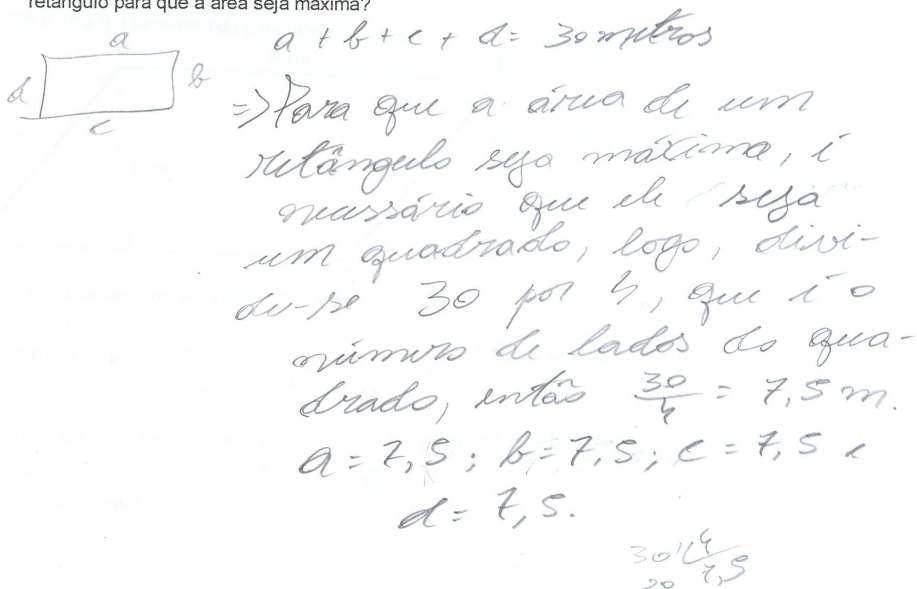 retângulo para que a área seja máxima?
a
d
b
c
a + b + c + d = 30 metros
=> Para que a área de um
retângulo seja máxima, é
necessário que ele seja
um quadrado, logo, divi-
de-se 30 por 4, que é o
número de lados do qua-
drado, então 30/4 = 7,5 m.
a = 7,5; b = 7,5; c = 7,5 e
d = 7,5.
30 4
20 7,5